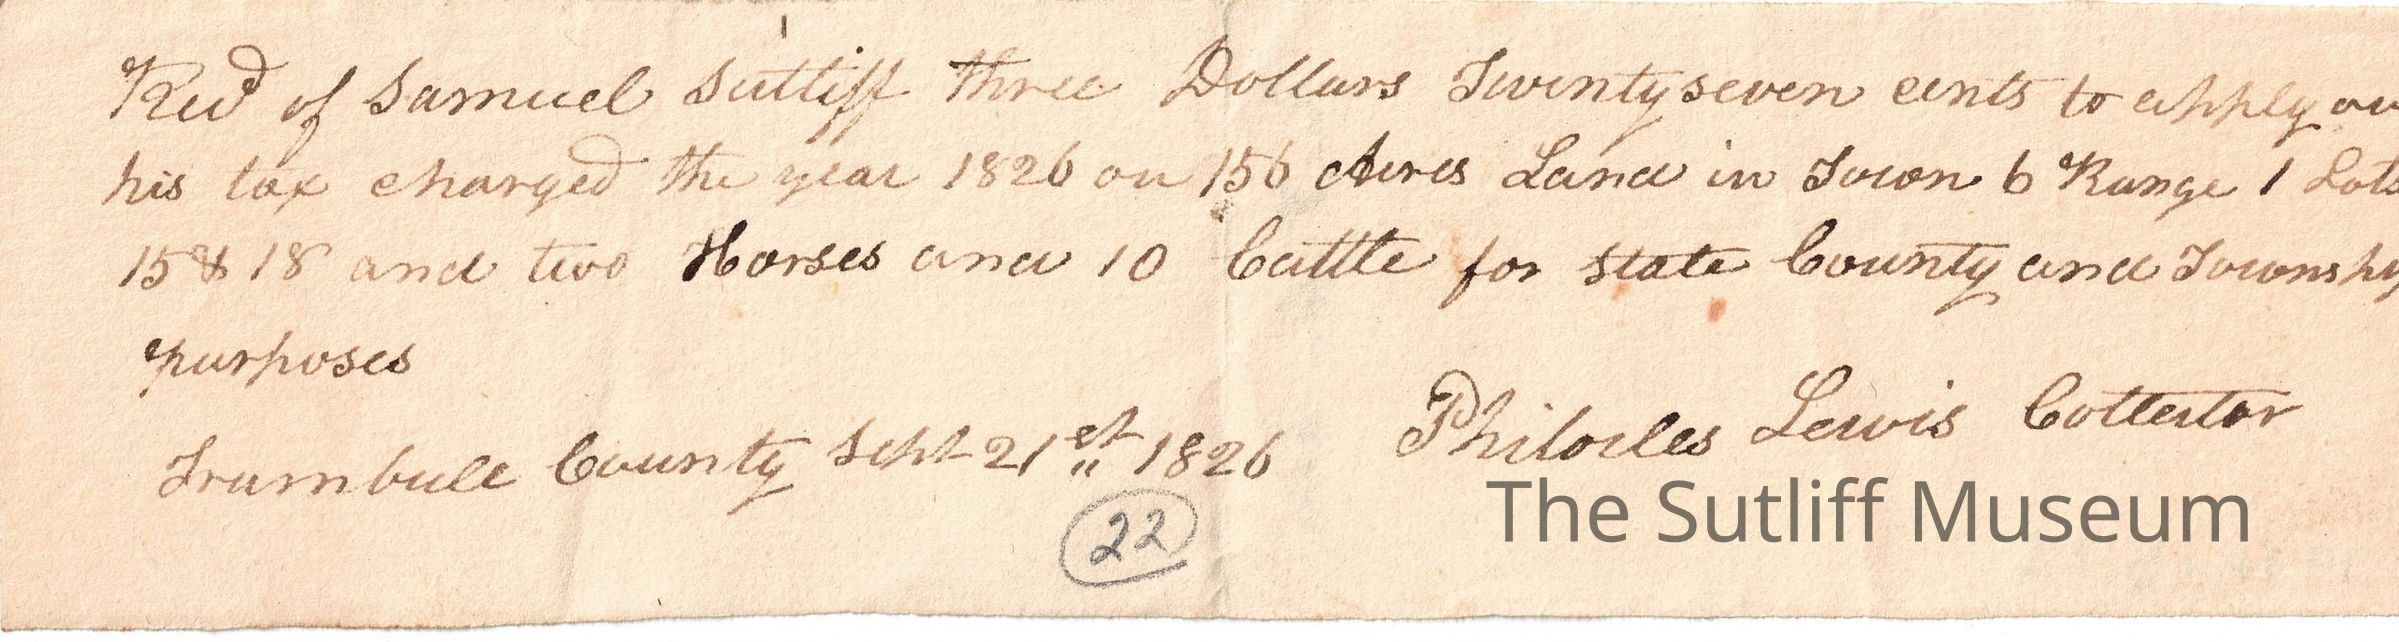 Recd of Samuel Sutliff three Dollars Twenty seven cents to apply on
his tax charged the year 1826 on 156 Acres Land in Town 6 Range 1 Lots
15 & 18 and two Horses and 10 Cattle for state County and Township
purposes
Trumbull County Sept 21st 1826
Philocles Lewis Collector
22
The Sutliff Museum